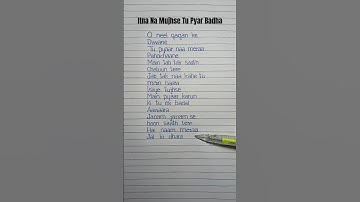 Itna Na Mujhse Tu Pyar Badha
O neel gagan ke
Diwane
Tu pyaar naa meraa
Pahachaane
Main tab tak saath
Chaloon tere
Jab tak naa kahe tu
main haara
Isaye tujhse
Main pyaar karun
Ki tu ek badal
Aawaara
Janam janam se
hoon saath tere
Hai naam meraa
Jal ki dhara